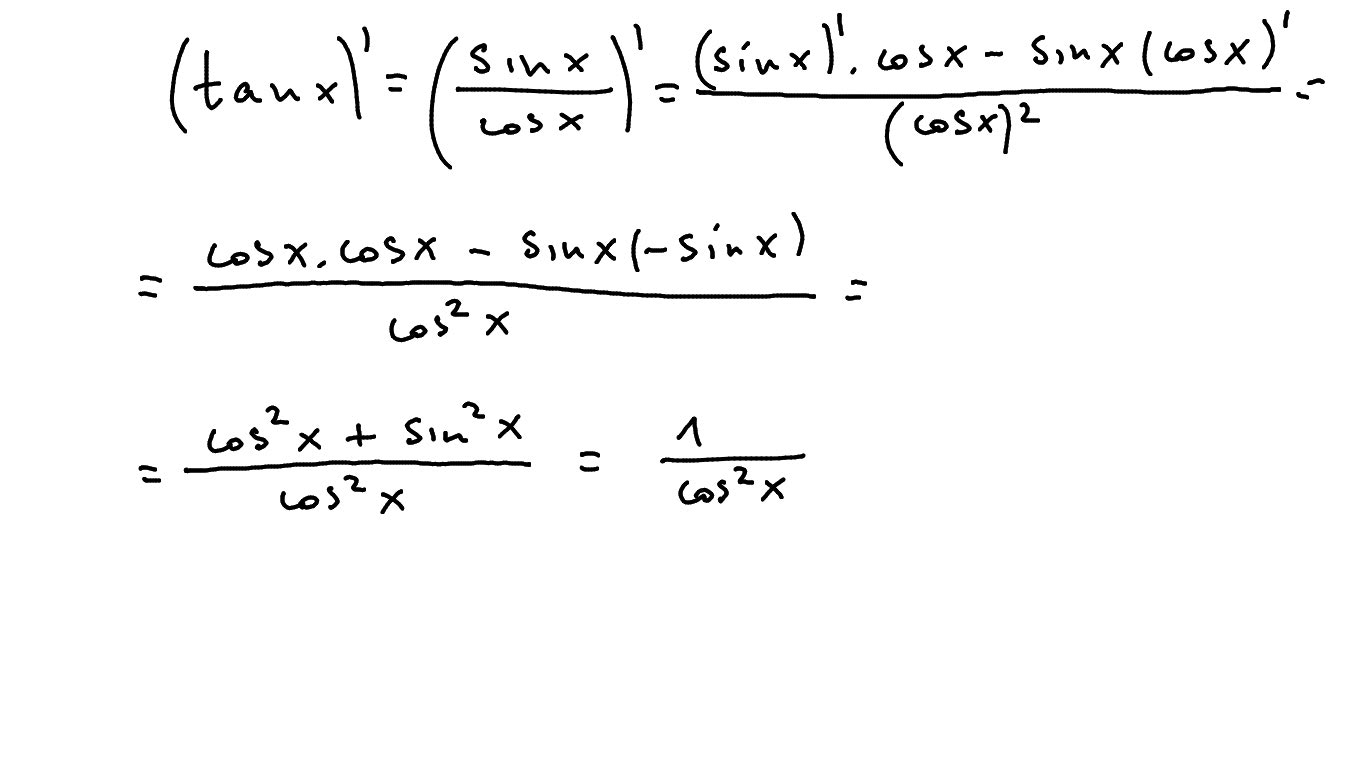 (tan x)' = (sin x / cos x)' = ((sin x)' . cos x - sin x (cos x)') / (cos x)² =
= (cos x . cos x - sin x (- sin x)) / cos² x =
= (cos² x + sin² x) / cos² x = 1 / cos² x